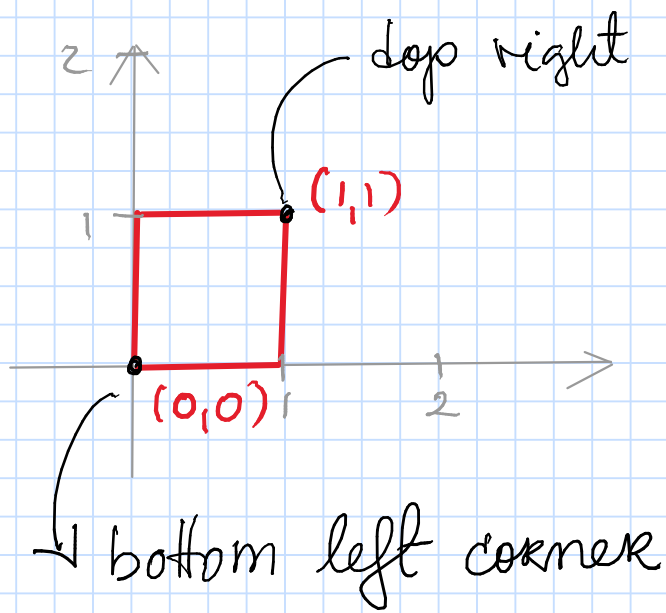 2
top right
(1,1)
1
(0,0)
1
2
bottom left corner